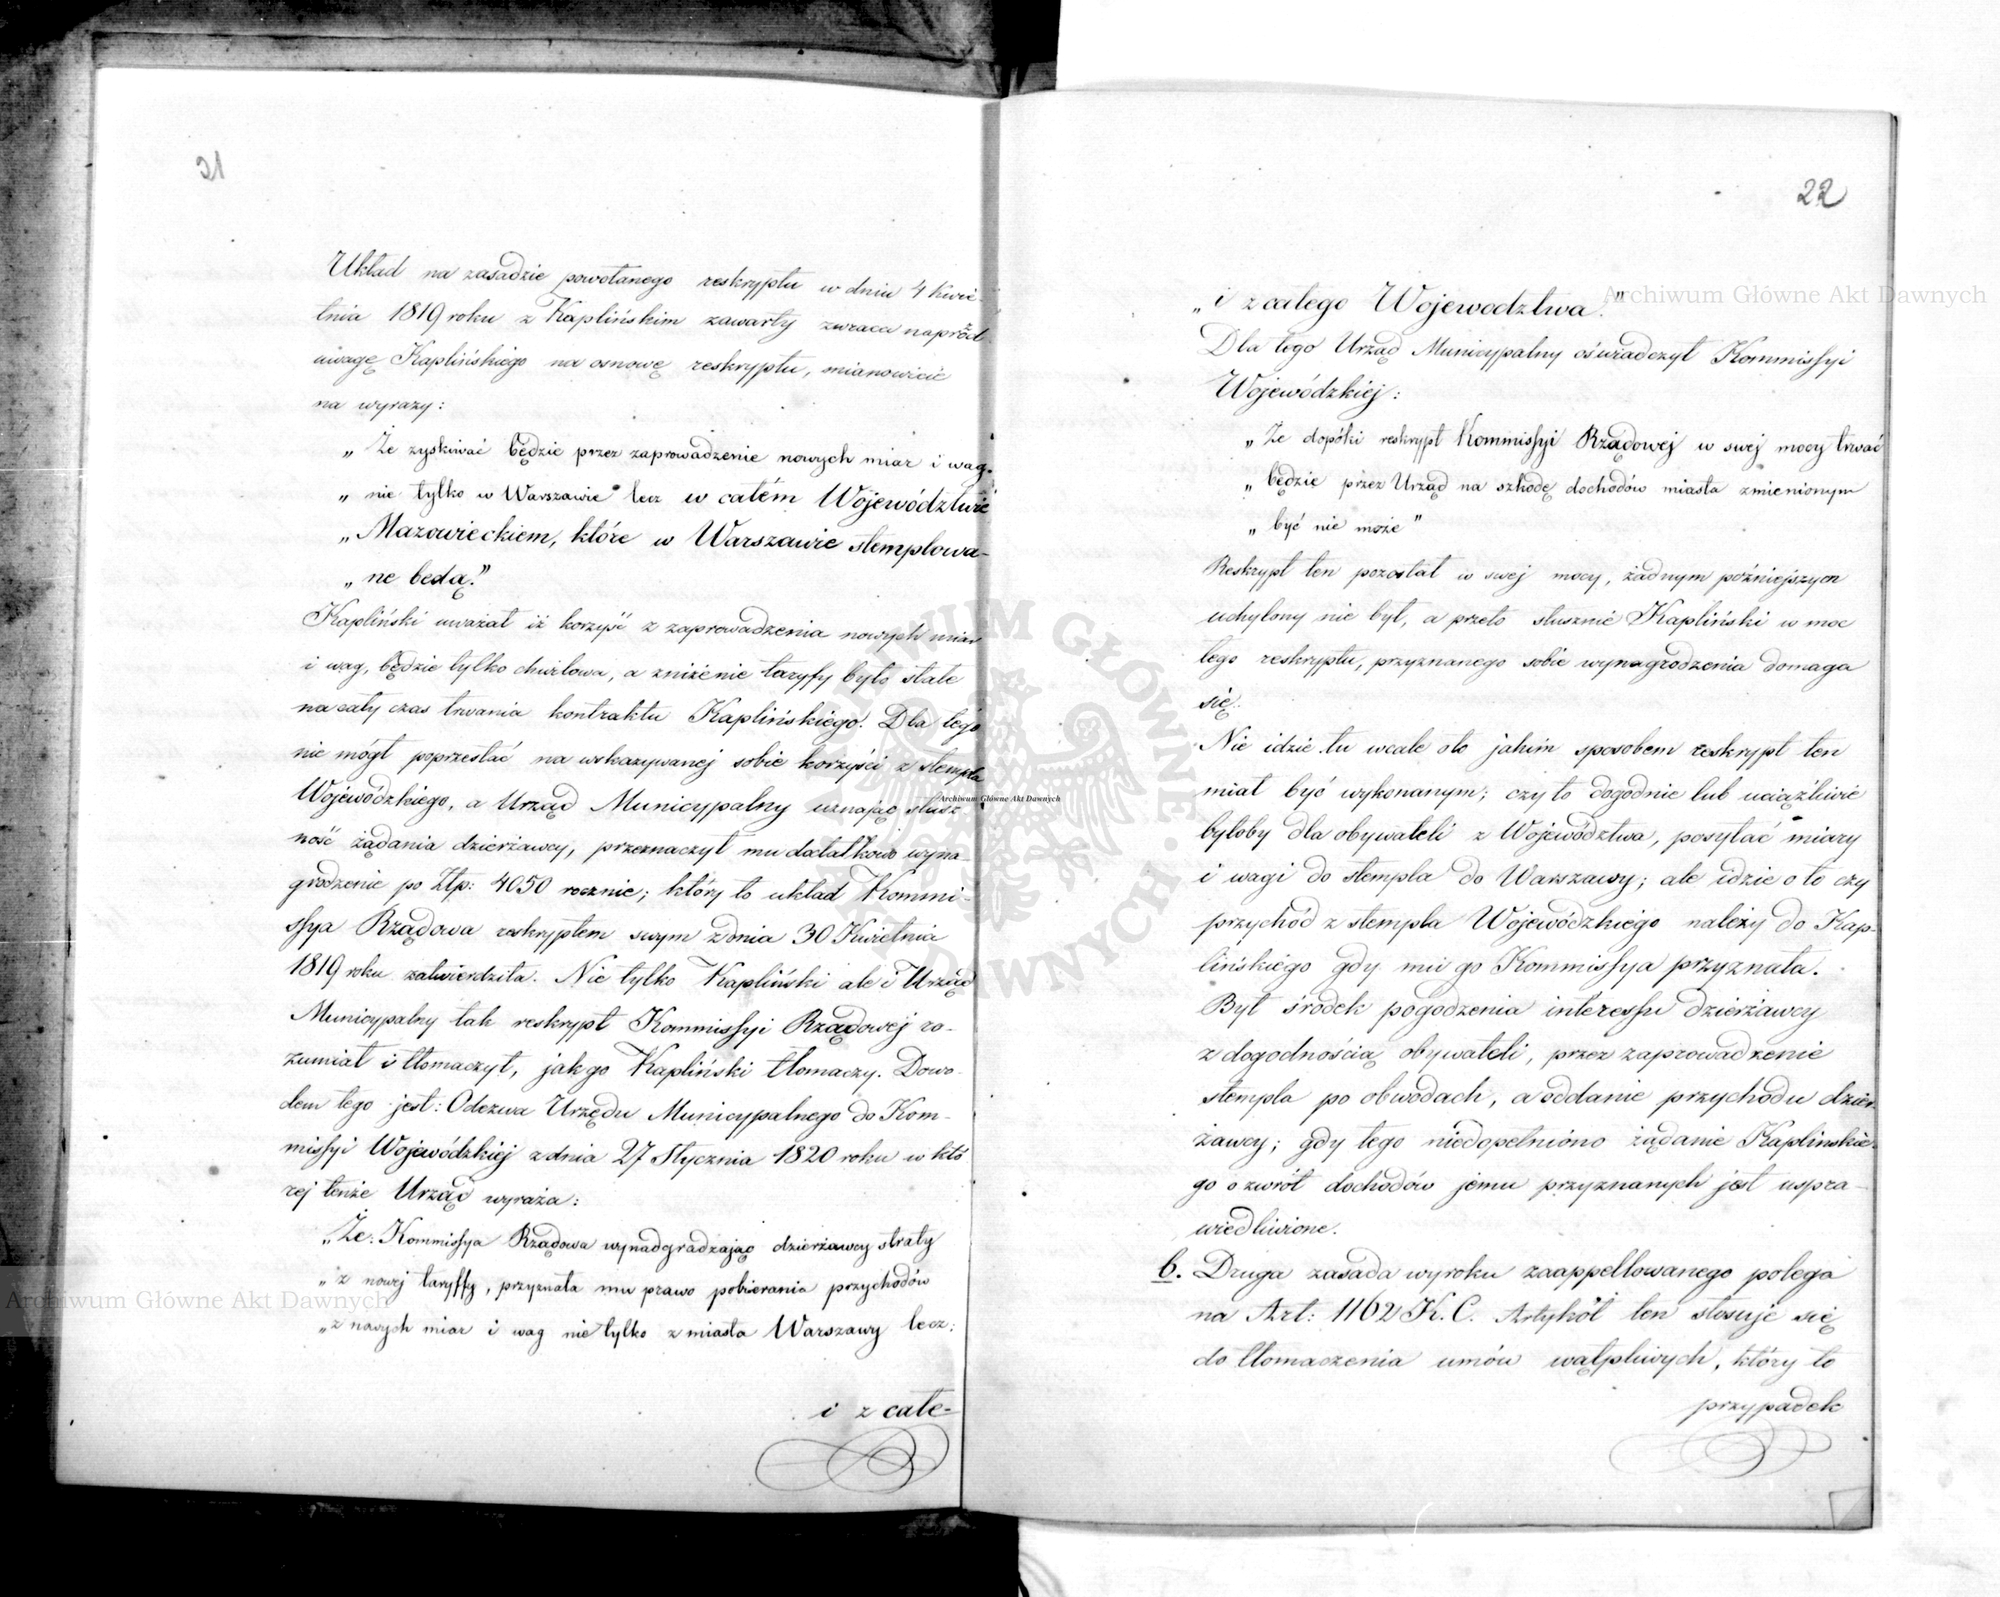 21
Układ na zasadzie powołanego reskryptu w dniu 4 Kwie-
tnia 1819 roku z Kaplińskim zawarty zwraca naprzód
uwagę Kaplińskiego na osnowę reskryptu, mianowicie
na wyrazy:
„ Że zyskiwać będzie przez zaprowadzenie nowych miar i wag.
„ nie tylko w Warszawie lecz w całém Województwie
„ Mazowieckiem, które w Warszawie stemplowa-
„ ne beda."
Kapliński uważał iż korzyść z zaprowadzenia nowych miar
i wag, będzie tylko chwilowa, a zniżenie taryfy było stałe
na cały czas trwania kontraktu Kaplińskiego. Dla tego
nie mógł poprzestać na wskazywanej sobie korzyści z stempla
Wojewódzkiego, a Urząd Municypalny uznając słusz
ność żądania dzierżawcy, przeznaczył mu dodatkowo wyna-
grodzenie po Złp: 4050 rocznie; który to układ Kommi-
ssya Rządowa reskryptem swym z dnia 30 Kwietnia
1819 roku zatwierdziła. Nie tylko Kapliński ale i Urząd
Municypalny tak reskrypt Kommissyi Rządowej ro-
zumiał i tłomaczył, jak go Kapliński tłomaczy. Dowo-
dem tego jest: Odezwa Urzędu Municypalnego do Kom-
missyi Wojewódzkiej z dnia 27 Stycznia 1820 roku w któ
rej tenże Urząd wyraża:
„Że: Kommissya Rządowa wynadgradzając dzierżawcy straty
„ z nowej taryffy, przyznała mu prawo pobierania przychodów
„ z nowych miar i wag nie tylko z miasta Warszawy lecz:
i z całe-
22
„ i z całego Wojewodztwa."
Dla tego Urząd Municypalny oświadczył Kommissyi
Wojewódzkiej:
„ Że dopóki reskrypt Kommissyi Rządowej w swej mocy trwać
„ będzie przez Urząd na szkodę dochodów miasta zmienionym
„ być nie może"
Reskrypt ten pozostał w swej mocy, żadnym poźniejszym
uchylony nie był, a przeto słusznie Kapliński w moc
tego reskryptu, przyznanego sobie wynagrodzenia domaga
się.
Nie idzie tu wcale o to jakim sposobem reskrypt ten
miał być wykonanym; czy to dogodnie lub uciążliwie
byłoby dla obywateli z Województwa, posyłać miary
i wagi do stempla do Warszawy; ale idzie o to czy
przychód z stempla Wojewódzkiego należy do Kap-
lińskiego gdy mu go Kommissya przyznała.
Był środek pogodzenia interessu dzierżawcy
z dogodnością obywateli, przez zaprowadzenie
stempla po obwodach, a oddanie przychodu dzier-
żawcy; gdy tego niedopełniono żądanie Kaplinskie-
go o zwrót dochodów jemu przyznanych jest uspra-
wiedliwione.
b. Druga zasada wyroku zaappellowanego polega
na Art: 1162 K. C. Artykół ten stosuje się
do tłomaczenia umów wątpliwych, który to
przypadek
Archiwum Główne Akt Dawnych
Archiwum Główne Akt Dawnych
Archiwum Główne Akt Dawnych